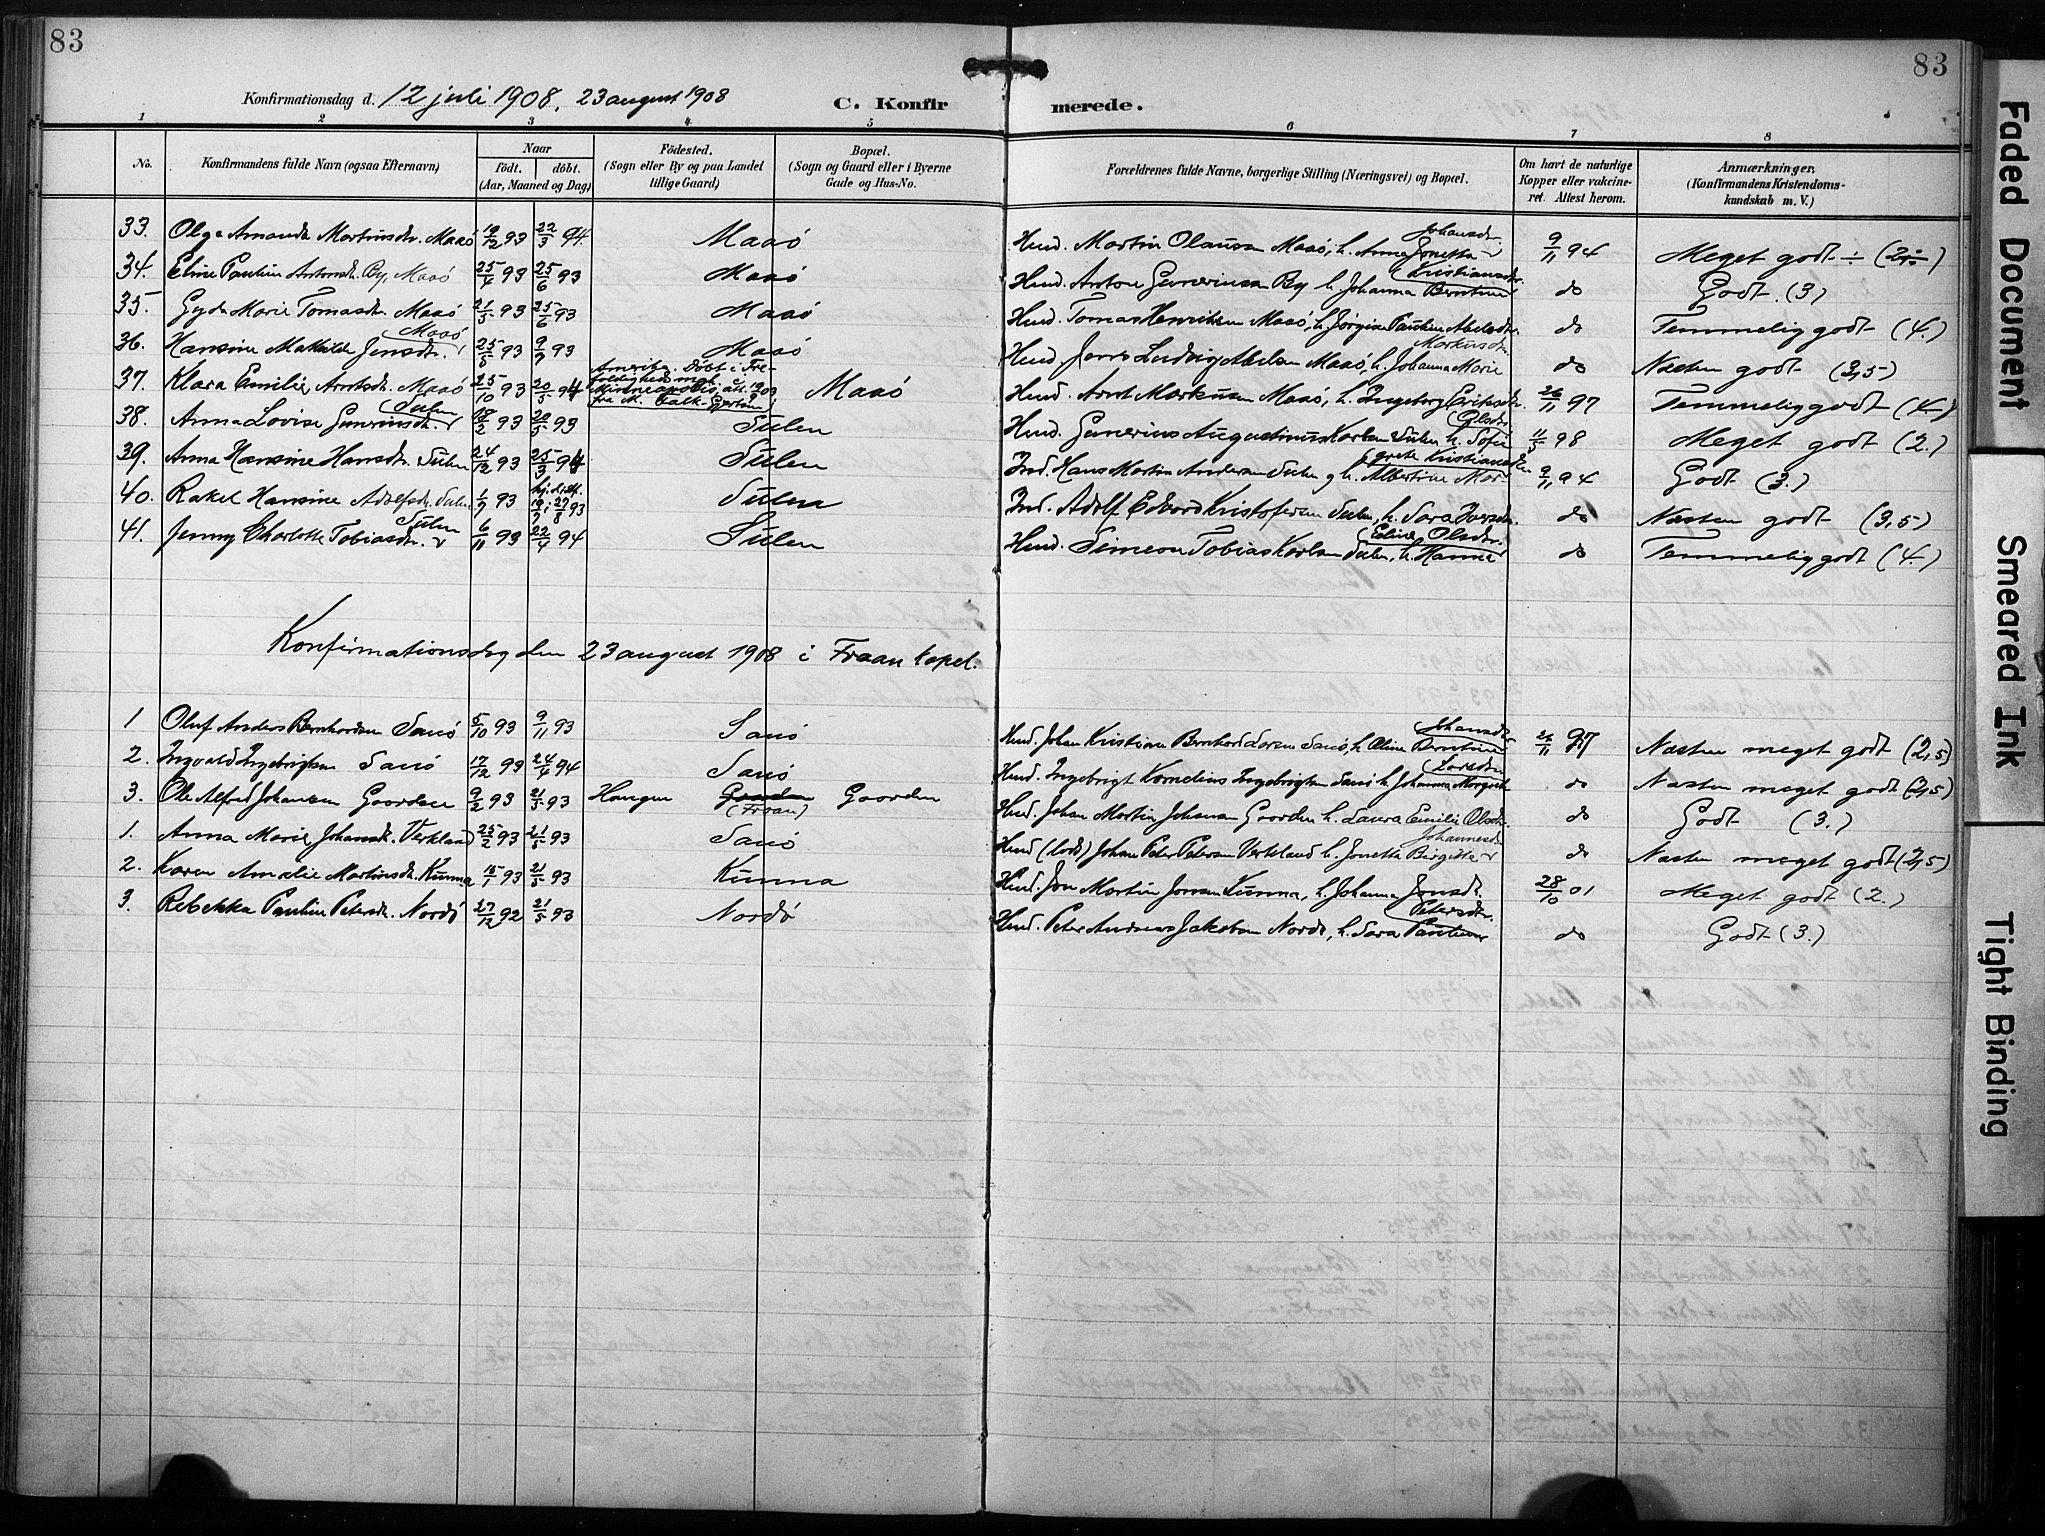 83
83
Konfirmationsdag d. 12 juli 1908, 23 august 1908 C. Konfirmerede.
1 2 3 4 5 6 7 8
No. Konfirmandens fulde Navn (ogsaa Efternavn) Naar födt. döbt. (Aar, Maaned og Dag) Födested. (Sogn eller By og paa Landet tillige Gaard) Bopæl. (Sogn og Gaard eller i Byerne Gade og Hus-No. Forældrenes fulde Navne, borgerlige Stilling (Næringsvei) og Bopæl. Om havt de naturlige Kopper eller vakcineret. Attest herom. Anmærkninger. (Konfirmandens Kristendomskundskab m. V.)
33. Olga Amanda Martinsdr. Maasö 19/12 93 22/3 94. Maasö Husd. Martin Olausen Maasö, h. Anna Jonetta Johansdr. 9/11 94 Meget godt ÷ (2÷)
34. Eline Pauline Antonsdr. By, Maasö 25/4 93 25/6 93 Maasö Husd. Anton Gunerinsen By h. Johanna Berntine Kristiansdr. do Godt. (3)
35. Gyda Marie Tomasdr. Maasö 21/5 93 25/6 93 Maasö Husd. Tomas Henriksen Maasö, h. Jörgine Pauline Abelsdr. do Temmelig godt (4.)
36. Hansine Mathilde Jensdr. Maasö 25/5 93 9/7 93 Maasö Husd. Jens Ludvig Abelsen Maasö, h. Johanna Marie Markusdr. do Næsten godt (3,5)
37. Klara Emilie Arntsdr. Maasö 25/10 93 20/5 94 Amerika. Döbt i Trefoldighed. megh. Minneapolis, att. 1903 fra M. Falk-Gjertsen Maasö Husd. Arnt Markusen Maasö, h. Ingeborg Eriksdr. 26/11 97 Temmelig godt (4.)
38. Anna Lovise Gunerinsdr. Sulen 18/2 93 20/5 93 Sulen Husd. Gunerius Augustinus Karlsen Sulen h. Sofie Olsdr. 11/5 98 Meget godt (2.)
39. Anna Hansine Hansdr. Sulen 24/12 93 25/3 94 Sulen Ind. Hans Martin Andersen Sulen g h. Albertine Margrete Kristiansdr. 9/11 94 Godt (3.)
40. Rakel Hansine Adolfsdr. Sulen 1/7 93 hj.d. 27/8 93 Sulen Ind. Adolf Edvard Kristofersen Sulen, h. Sara Iversdr. do Næsten godt (3,5)
41. Jenny Charlotte Tobiasdr. Sulen 6/11 93 22/4 94 Sulen Husd. Simeon Tobias Karlsen Sulen, h. Hanna Eline Olsdr. do Temmelig godt (4.)
Konfirmationsdag den 23 august 1908 i Froan kapel.
1 Oluf Anders Bernhardsen Sauö 5/10 93 9/11 93 Sauö Husd. Johan Kristian Bernhard Larsen Sauö, h. Oline Berntine Johansdr. 26/11 97 Næsten meget godt (2,5)
2. Ingvald Ingebrigtsen Sauö 17/12 93 24/4 94 Sauö Husd. Ingebrigt Kornelius Ingebrigtsen Sauö h. Johanna Margrete Larsdr. do Næsten meget godt (2,5)
3. Ole Alfred Johansen Gaarden 9/2 93 21/5 93 Haugen Gaarden (Froan) Gaarden Husd. Johan Martin Johansen Gaarden h. Laura Emilie Olsdr. do Godt (3.)
1. Anna Marie Johansdr. Verkland 25/2 93 21/5 93 Sauö Husd (lods) Johan Peter Petersen Verkland h. Jonetta Birgitte Johannesdr. do Næsten meget godt (2,5)
2. Karen Amalie Martinsdr. Kunna 15/1 93 21/5 93 Kunna Husd. Jon Martin Jonsen Kunna, h. Johanna Jonsdr. 28/10 01 Meget godt (2.)
3. Rebekka Pauline Petersdr. Nordö 27/12 92 21/5 93 Nordö Husd. Peter Andreas Jakobsen Nordö, h. Sara Pauline Petersdr. do Godt (3.)
Faded Document
Smeared Ink
Tight Binding